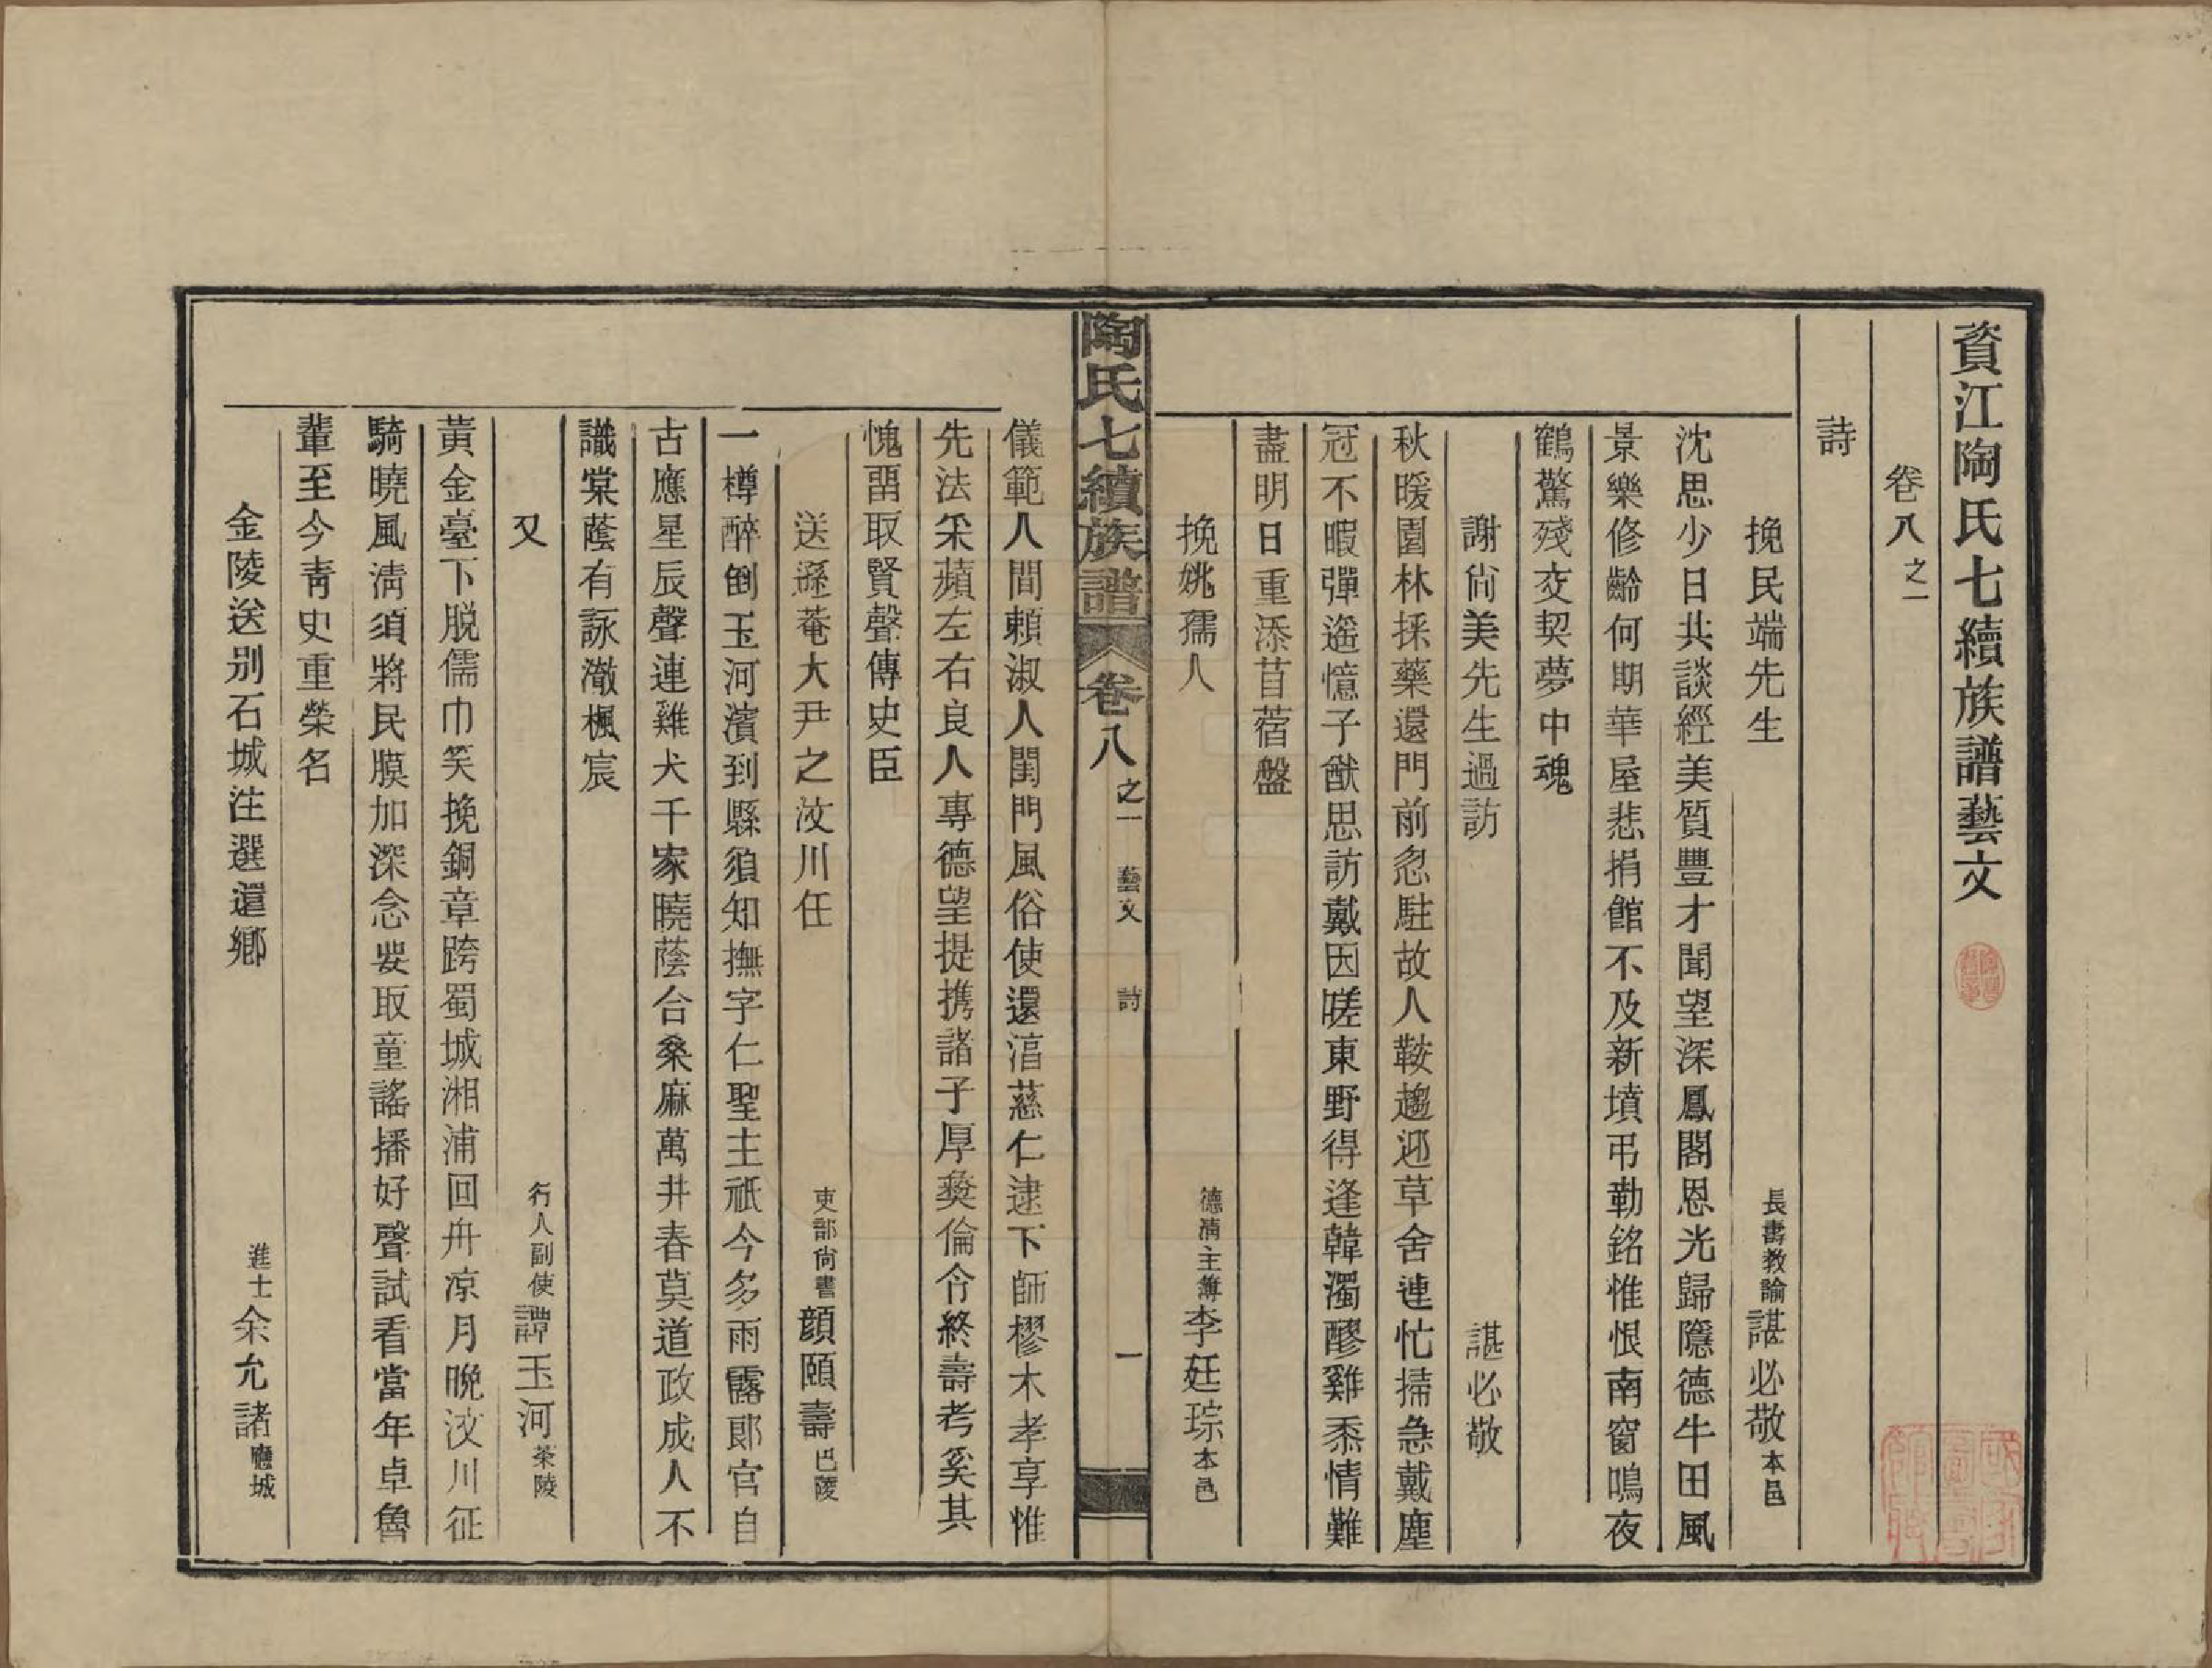 資江陶氏七續族譜藝文
卷八之一
詩
挽民端先生 長壽教諭諶必敬本邑
沈思少日共談經美質豐才聞望深鳳閣恩光歸隱德牛田風
景樂修齡何期華屋悲捐館不及新墳弔勒銘惟恨南窗鳴夜
鶴驚殘交契夢中魂
謝尙美先生過訪 諶必敬
秋暖園林採藥還門前忽駐故人鞍趨迎草舍連忙掃急戴塵
冠不暇彈遥憶子猷思訪戴因嗟東野得逢韓濁醪雞黍情難
盡明日重添苜蓿盤
挽姚孺人 德清主簿李廷琮本邑
陶氏七續族譜 卷八之一 藝文 詩 一
儀範人間賴淑人閨門風俗使還湻慈仁逮下師樛木孝享惟
先法采蘋左右良人專德望提携諸子厚彝倫令終壽考奚其
愧畱取賢聲傳史臣
送遜菴大尹之汶川任 吏部尙書顏頤壽巴陵
一樽醉倒玉河濱到縣須知撫字仁聖主祇今多雨露郎官自
古應星辰聲連雞犬千家曉蔭合桑麻萬井春莫道政成人不
識棠蔭有詠澈楓宸
又 行人副使譚玉河茶陵
黃金臺下脱儒巾笑挽銅章跨蜀城湘浦回舟凉月晚汶川征
騎曉風淸須將民膜加深念要取童謠播好聲試看當年卓魯
輩至今靑史重榮名
金陵送别石城注選還鄉 進士余允諸應城